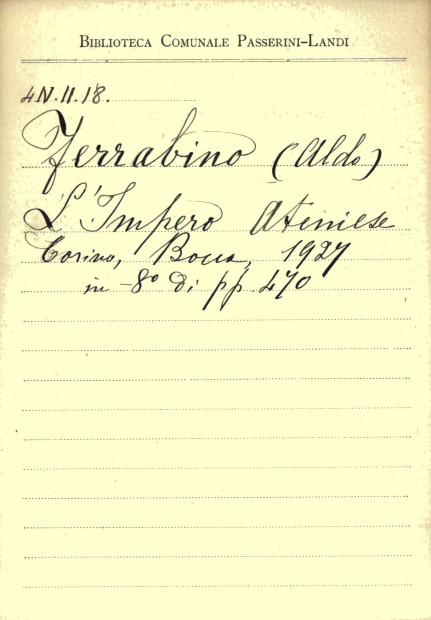 BIBLIOTECA COMUNALE PASSERINI-LANDI
4N.II.18.
Ferrabino (Aldo)
L'Impero Ateniese
Torino, Bocca, 1927
in -8° di pp. 470